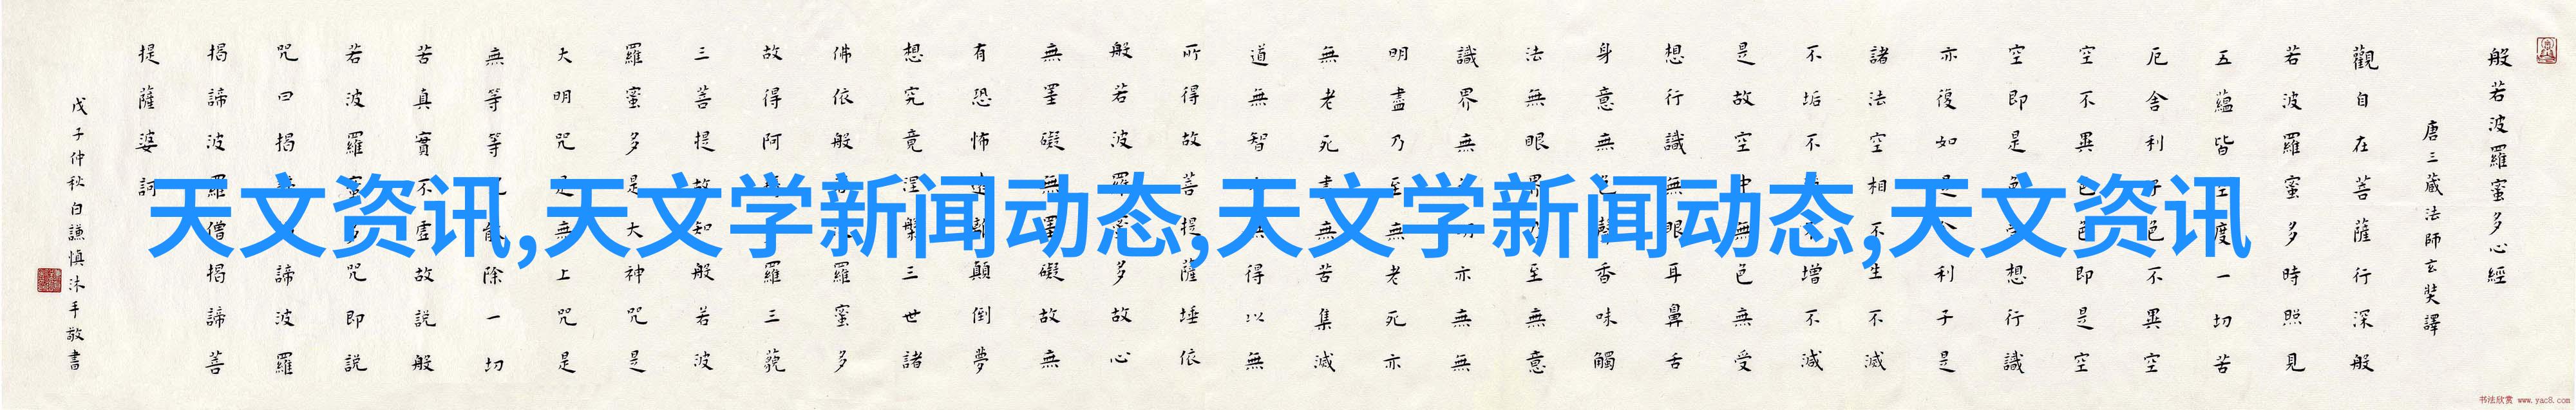 般若波羅蜜多心經
唐三藏法師玄奘譯
觀自在菩薩行深般
若波羅蜜多時照見
五蘊皆空度一切苦
厄舍利子色不異空
空不異色色即是空
空即是色想行識
亦復如是利子是
諸法空相不生不滅
不垢不不增不減
是故空中無色無受
想行識無眼耳鼻舌
身意無色聲香味觸
法無眼界乃至無意
識界無亦無無
明盡乃至無老死亦
無老死盡無苦集滅
道無智無得以無
所得故菩提薩埵依
般若波羅蜜多故心
無罣礙無罣礙故無
有恐怖遠離顛倒夢
想究竟涅槃三世諸
佛依般若波羅蜜多
故得阿羅三藐
三菩提故知般若波
羅蜜多是大神咒是
大明咒是無上咒是
無等等咒能除一切
苦真實不虛故說般
若波羅蜜多咒即說
咒曰揭諦波羅
揭諦波羅僧揭諦菩
提薩婆訶
戊子仲秋白謙慎沐手敬書
天文资讯,天文学新闻动态,天文学新闻动态,天文资讯
书法欣赏 www.yac8.com